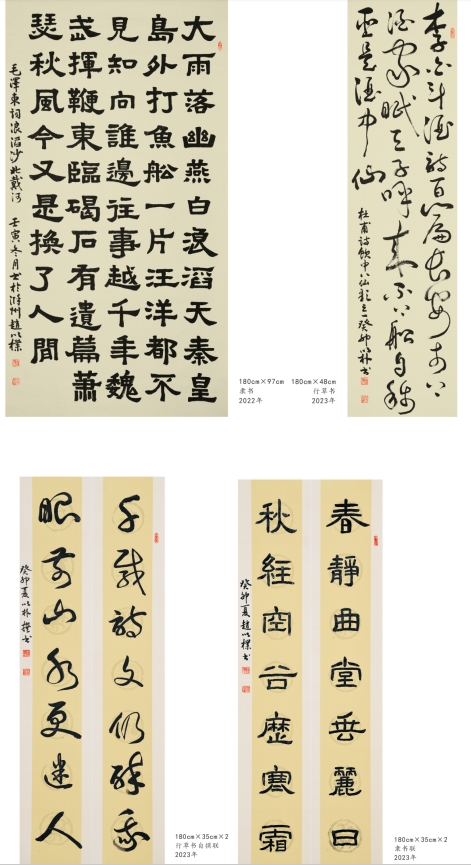 大雨落幽燕白浪滔天秦皇
島外打魚舩一片汪洋都不
見知向誰邊往事越千年魏
武揮鞭東臨碣石有遺篇蕭
瑟秋風今又是換了人間
毛澤東詞浪淘沙北戴河 壬寅冬月書於滁州趙以樸
李白斗酒詩百篇長安市上
酒家眠天子呼來不上船自稱
臣是酒中仙
杜甫詩飲中八仙歌之一癸卯以樸書
180cm×97cm
隶书
2022年
180cm×48cm
行草书
2023年
千載詩文仍醉我
眼前山水更迷人
癸卯夏以樸撰書
180cm×35cm×2
行草书自撰联
2023年
春靜曲堂垂麗日
秋經空谷歷寒霜
癸卯夏趙以樸書
180cm×35cm×2
隶书联
2023年